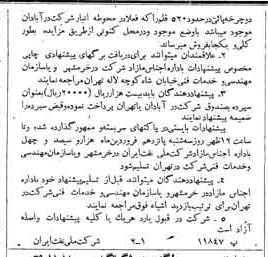 دوچرخه پائی در حدود ۵۲۰ قلم را که فعلا در محوطه انبار شرکت در آبادان
موجود میباشد با وضع موجود و در محل کنونی از طریق مزایده بطور
کلی و یکجا بفروش میرساند
۲ـ علاقمندان میتوانند برای دریافت برگهای پیشنهادی چاپی
مخصوص پیشنهادات باداره اجناس مازاد شرکت در خرمشهر و یا سازمان
مهندسی و خدمات فنی خیابان شاه کوچه لاله تهران مراجعه نمایند
۳ـ پیشنهاد دهندگان باید بیست هزار ریال (۲۰۰۰۰ ریال) بعنوان
سپرده بصندوق شرکت در آبادان یا تهران پرداخت نموده و قبض سپرده را
ضمیمه پیشنهاد نمایند
پیشنهادات بایستی در پاکتهای سربسته و ممهور گذارده شده و تا
ساعت ۱۲ ظهر روز سه شنبه پانزدهم فروردین ماه هزار و سیصد و چهل
باداره اجناس مازاد شرکت ملی نفت ایران در خرمشهر و یا سازمان مهندسی
و خدمات فنی شرکت در تهران تسلیم شود
۴ـ پیشنهاد دهندگان میتوانند قبل از تسلیم پیشنهاد خود باداره
اجناس مازاد در خرمشهر و یا سازمان مهندسی و خدمات فنی شرکت در
تهران برای ترتیب بازدید اشیاء فوق مراجعه نمایند
۵ ـ شرکت در قبول یا رد هر یک یا کلیه پیشنهادات واصله
آزاد است
پ ۱۱۸۴۷ ۲ــ۱ شرکت ملی نفت ایران